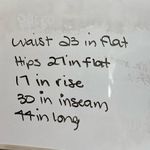 Waist 23 in flat
Hips 27 in flat
17 in rise
30 in inseam
44 in long